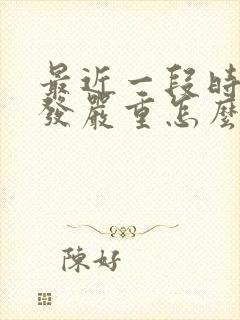 最近一段時
發嚴重怎麼
陳好